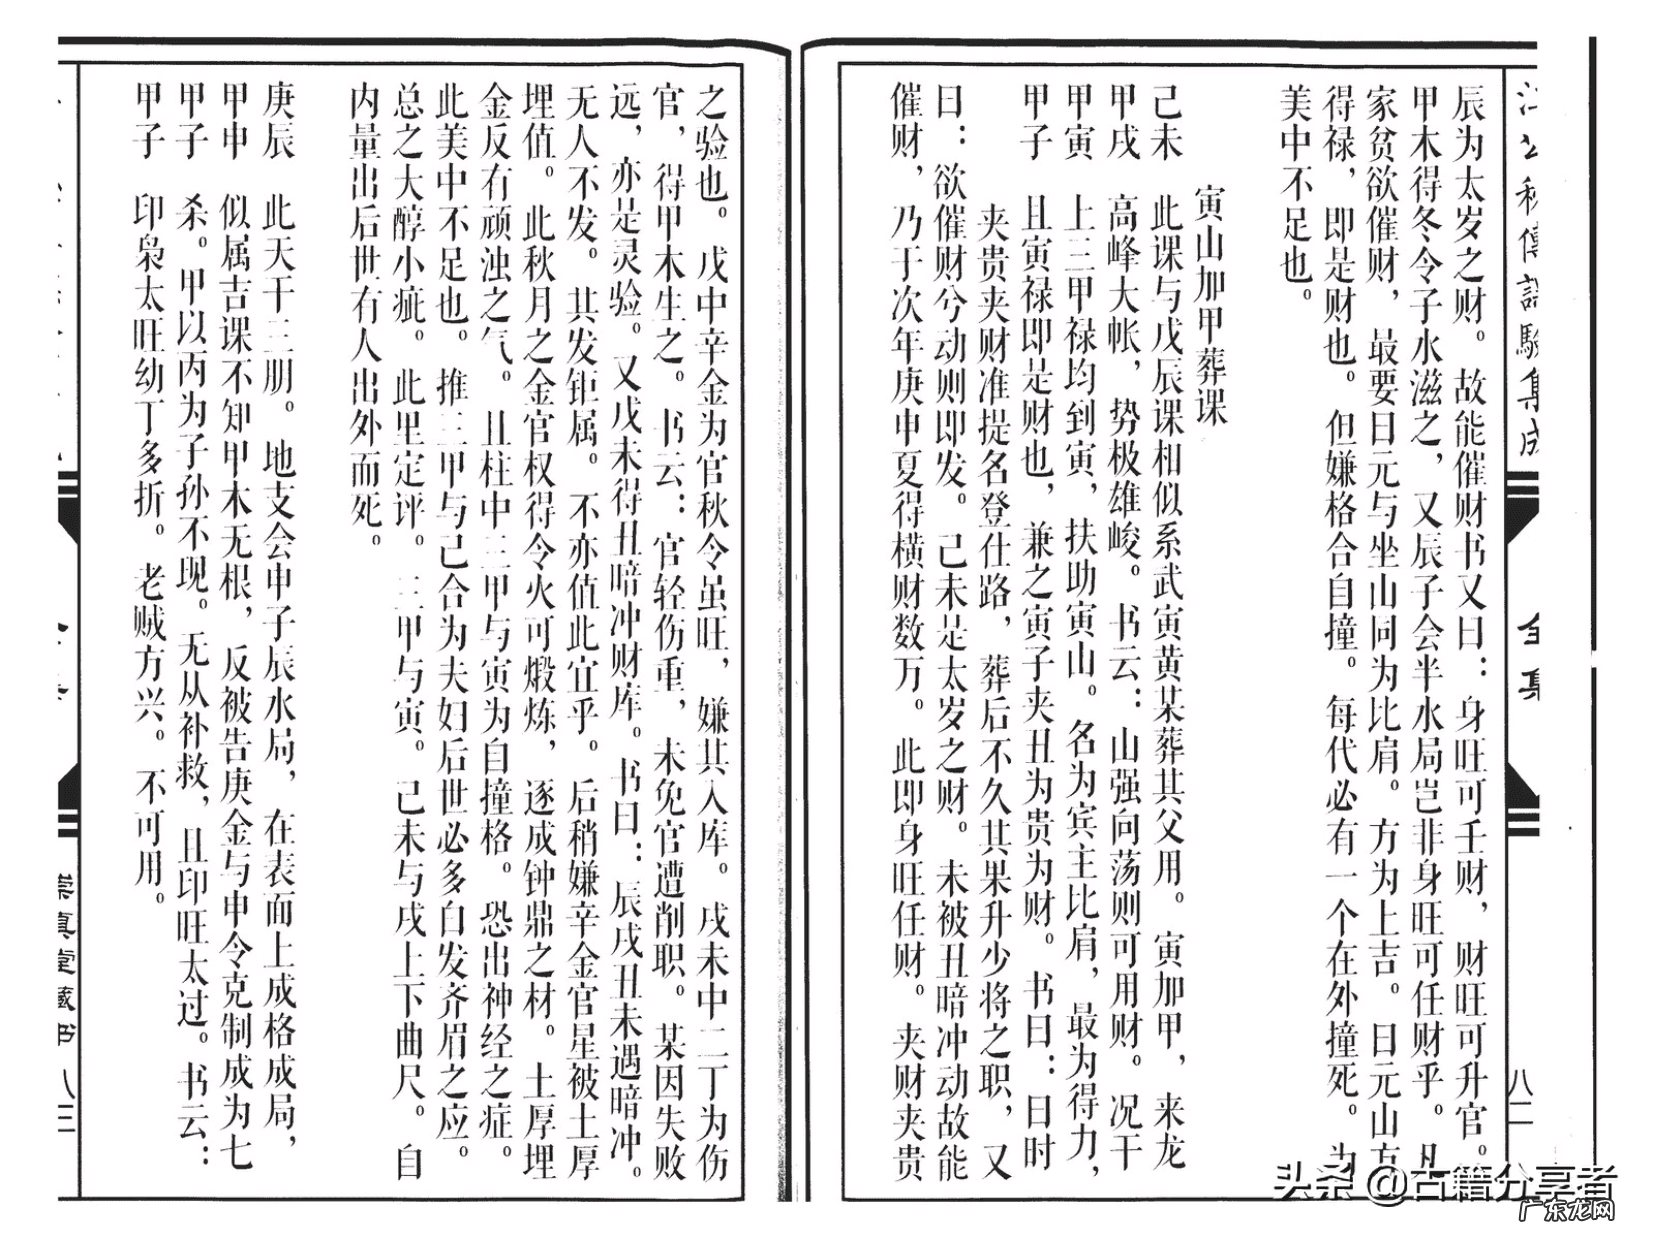 辰为太岁之财。故能催财书又曰：身旺可壬财，财旺可升官。
甲木得冬令子水滋之，又辰子会半水局岂非身旺可任财乎。凡
家贫欲催财，最要日元与坐山同为比肩。方为上吉。日元山方
得禄，即是财也。但嫌格合自撞。每代必有一个在外撞死。为
美中不足也。
寅山加甲葬课
己未 此课与戊辰课相似系武寅黄某葬其父用。寅加甲，来龙
甲戌 高峰大帐，势极雄峻。书云：山强向荡则可用财。况干
甲寅 上三甲禄均到寅，扶助寅山。名为宾主比肩，最为得力，
甲子 且寅禄即是财也，兼之寅子夹丑为贵为财。书曰：日时
夹贵夹财准提名登仕路，葬后不久其果升少将之职，又
曰：欲催财兮动则即发。己未是太岁之财。未被丑暗冲动故能
催财，乃于次年庚申夏得横财数万。此即身旺任财。夹财夹贵
八二
之验也。戊中辛金为官秋令虽旺，嫌其入库。戌未中二丁为伤
官，得甲木生之。书云：官轻伤重，未免官遭削职。某因失败
远，亦是灵验。又戊未得丑暗冲财库。书曰：辰戌丑未遇暗冲。
无人不发。其发钜属。不亦值此宜乎。后稍嫌辛金官星被土厚
埋值。此秋月之金官权得令火可煅炼，逐成钟鼎之材。土厚埋
金反有顽浊之气。且柱中三甲与寅为自撞格。恐出神经之症。
此美中不足也。推三甲与己合为夫妇后世必多白发齐眉之应。
总之大醇小疵。此里定评。三甲与寅。己未与戌上下曲尺。自
内量出后世有人出外而死。
庚辰 此天干三朋。地支会申子辰水局，在表面上成格成局，
甲申 似属吉课不知甲木无根，反被告庚金与申令克制成为七
甲子 杀。甲以丙为子孙不现。无从补救，且印旺太过。书云：
甲子 印枭太旺幼丁多折。老贼方兴。不可用。
崇真堂藏书 八三
头条 @古籍分享者
广东龙网